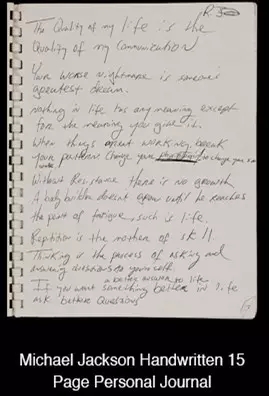 The Quality of my life is the
Quality of my Communication
Your worse nightmare is someone's
greatest dream.
nothing in life has any meaning except
for the meaning you give it.
When things arent working, break
your pattern change your to change your
Without Resistance there is no growth
A body builder doesnt grow until he reaches
the point of fatigue, such is life.
Repitition is the mother of skill.
Thinking is the process of asking and
answering questions to yourself.
a better answer to life
If you want something better in life
ask better Questions
Michael Jackson Handwritten 15
Page Personal Journal